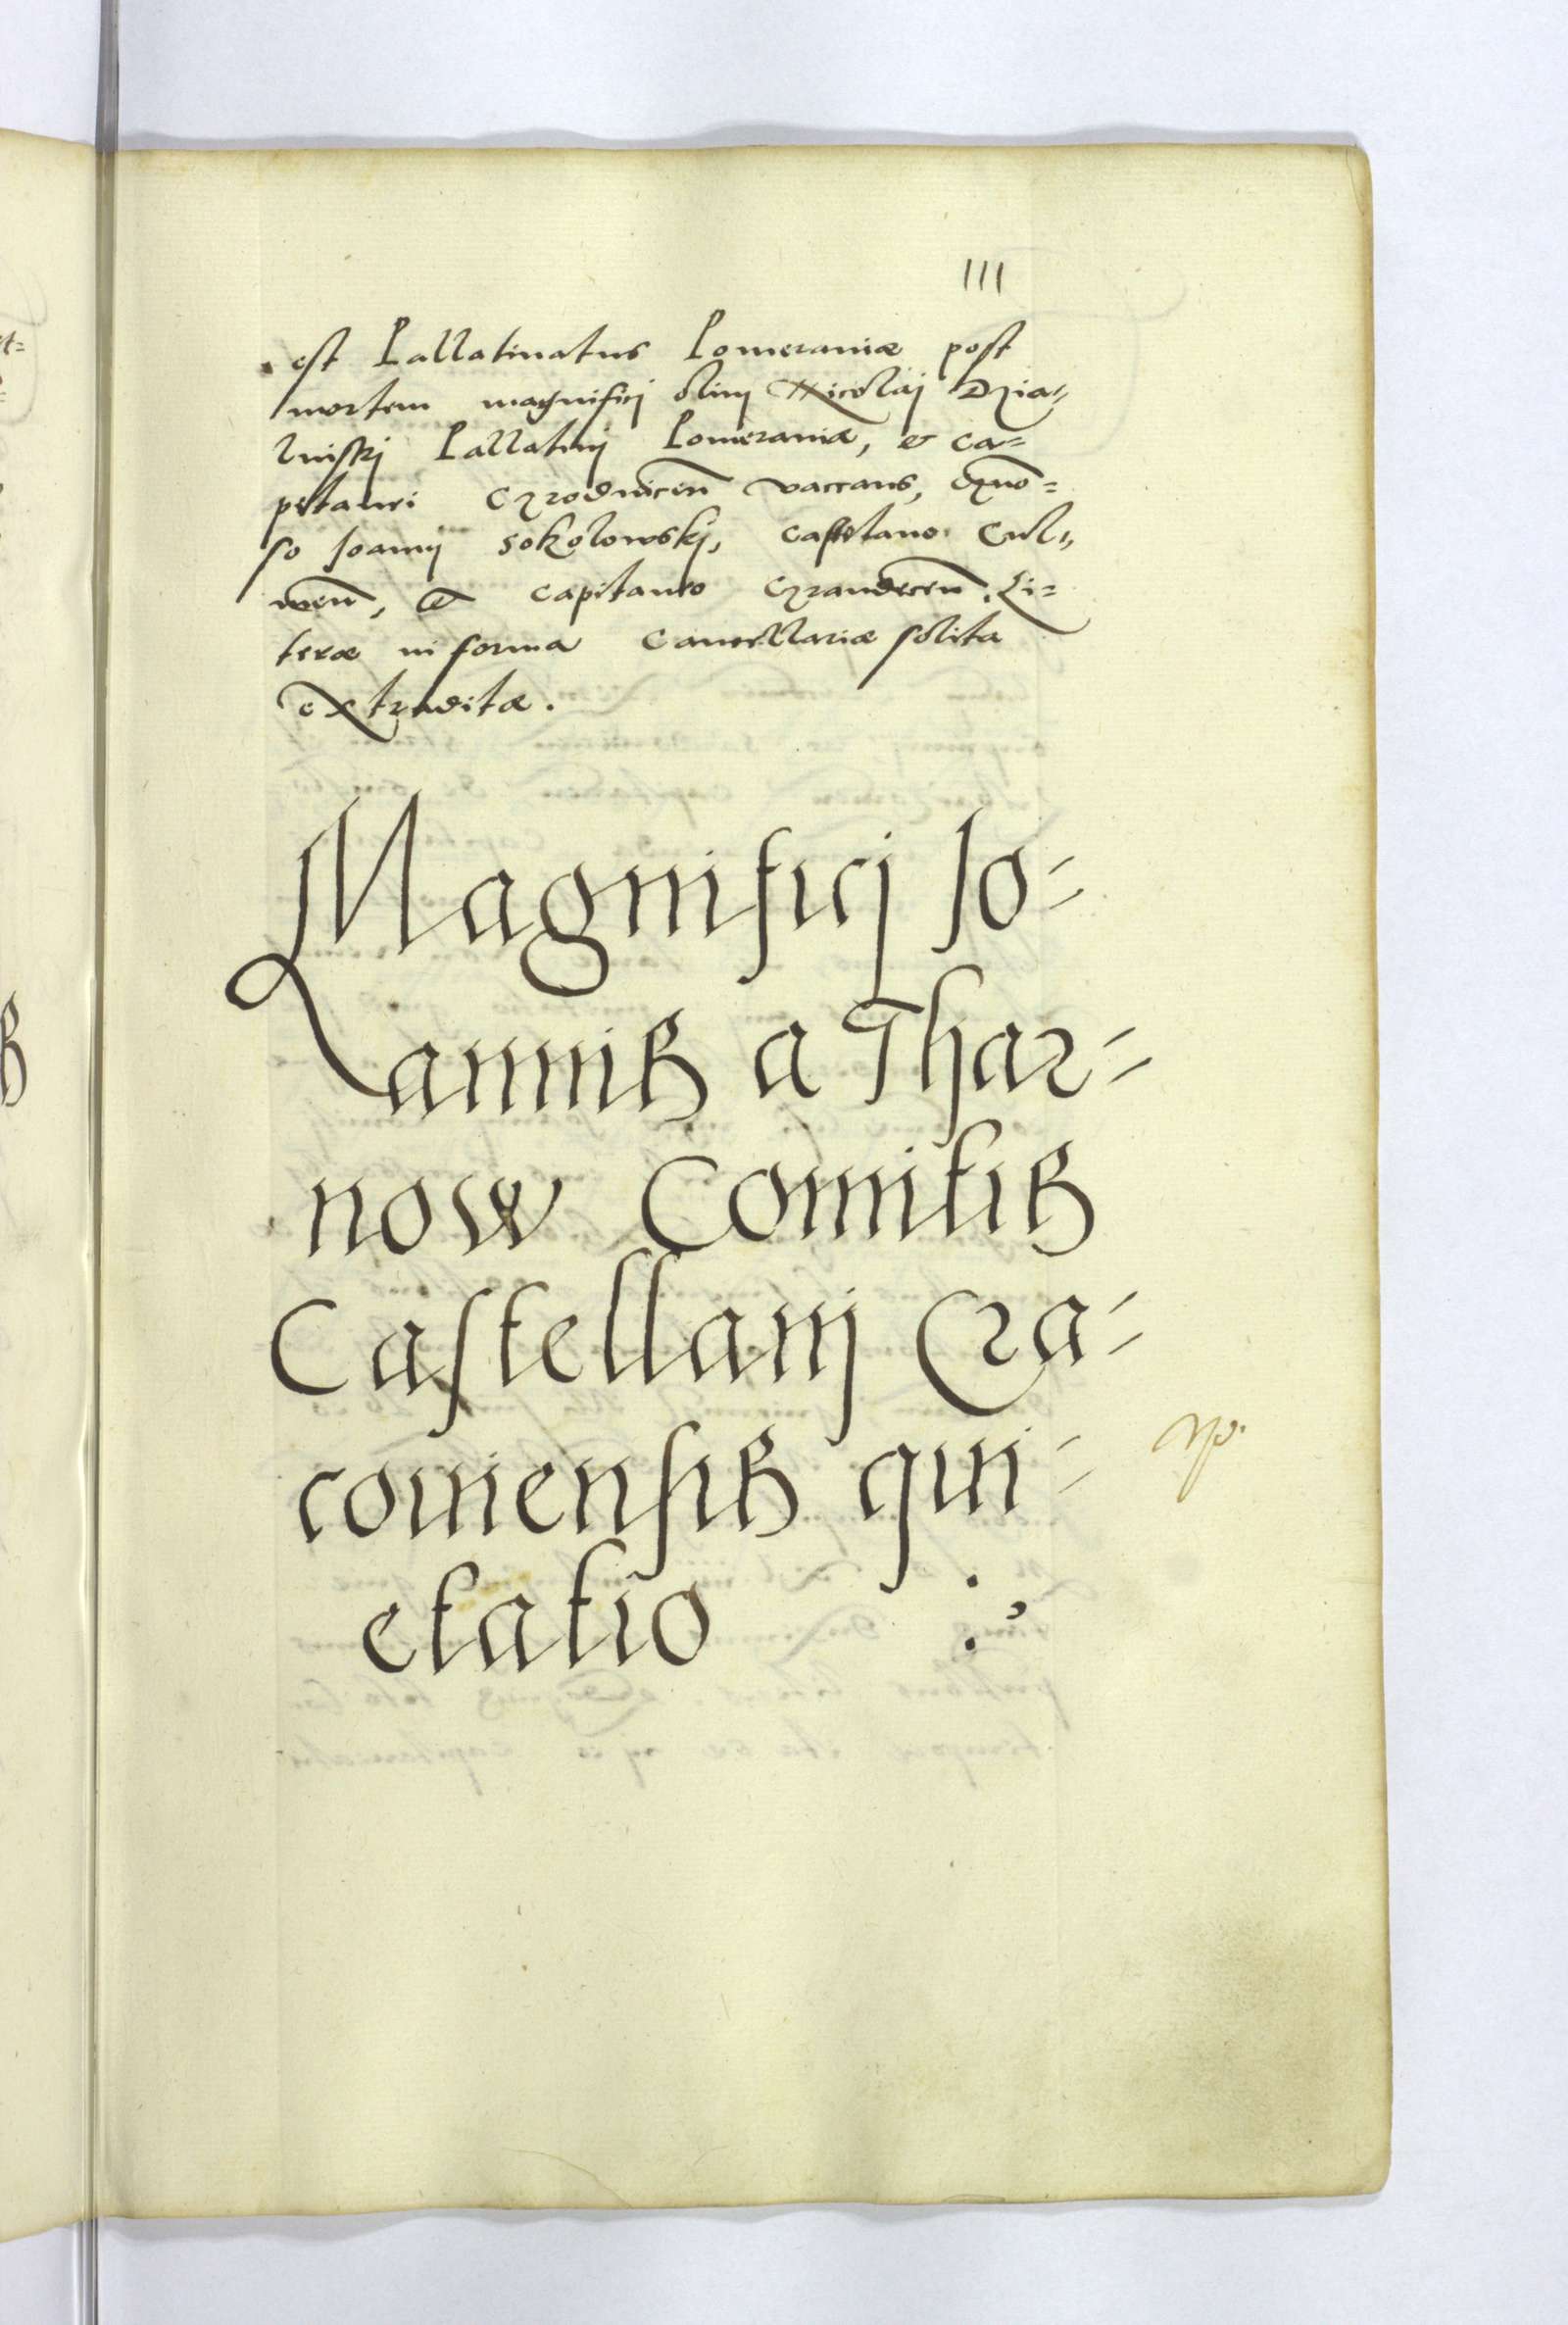 111
est Pallatinatus Pomeraniæ post
mortem magnifici olim Nicolai Dzia„
linskj Pallatinj Pomeraniæ, et ca=
pitanei Brodnicen̄ vaccans, Gn̄o=
so Joannj Sokolowskj, castelano Cul„
men̄, et capitaneo Grandecen̄. Li=
teræ in forma Cancellariæ solita
extraditæ.
Magnificj Jo=
annis a Thar=
now Comitis
Castellanj Cra=
couiensis qui=
etatio